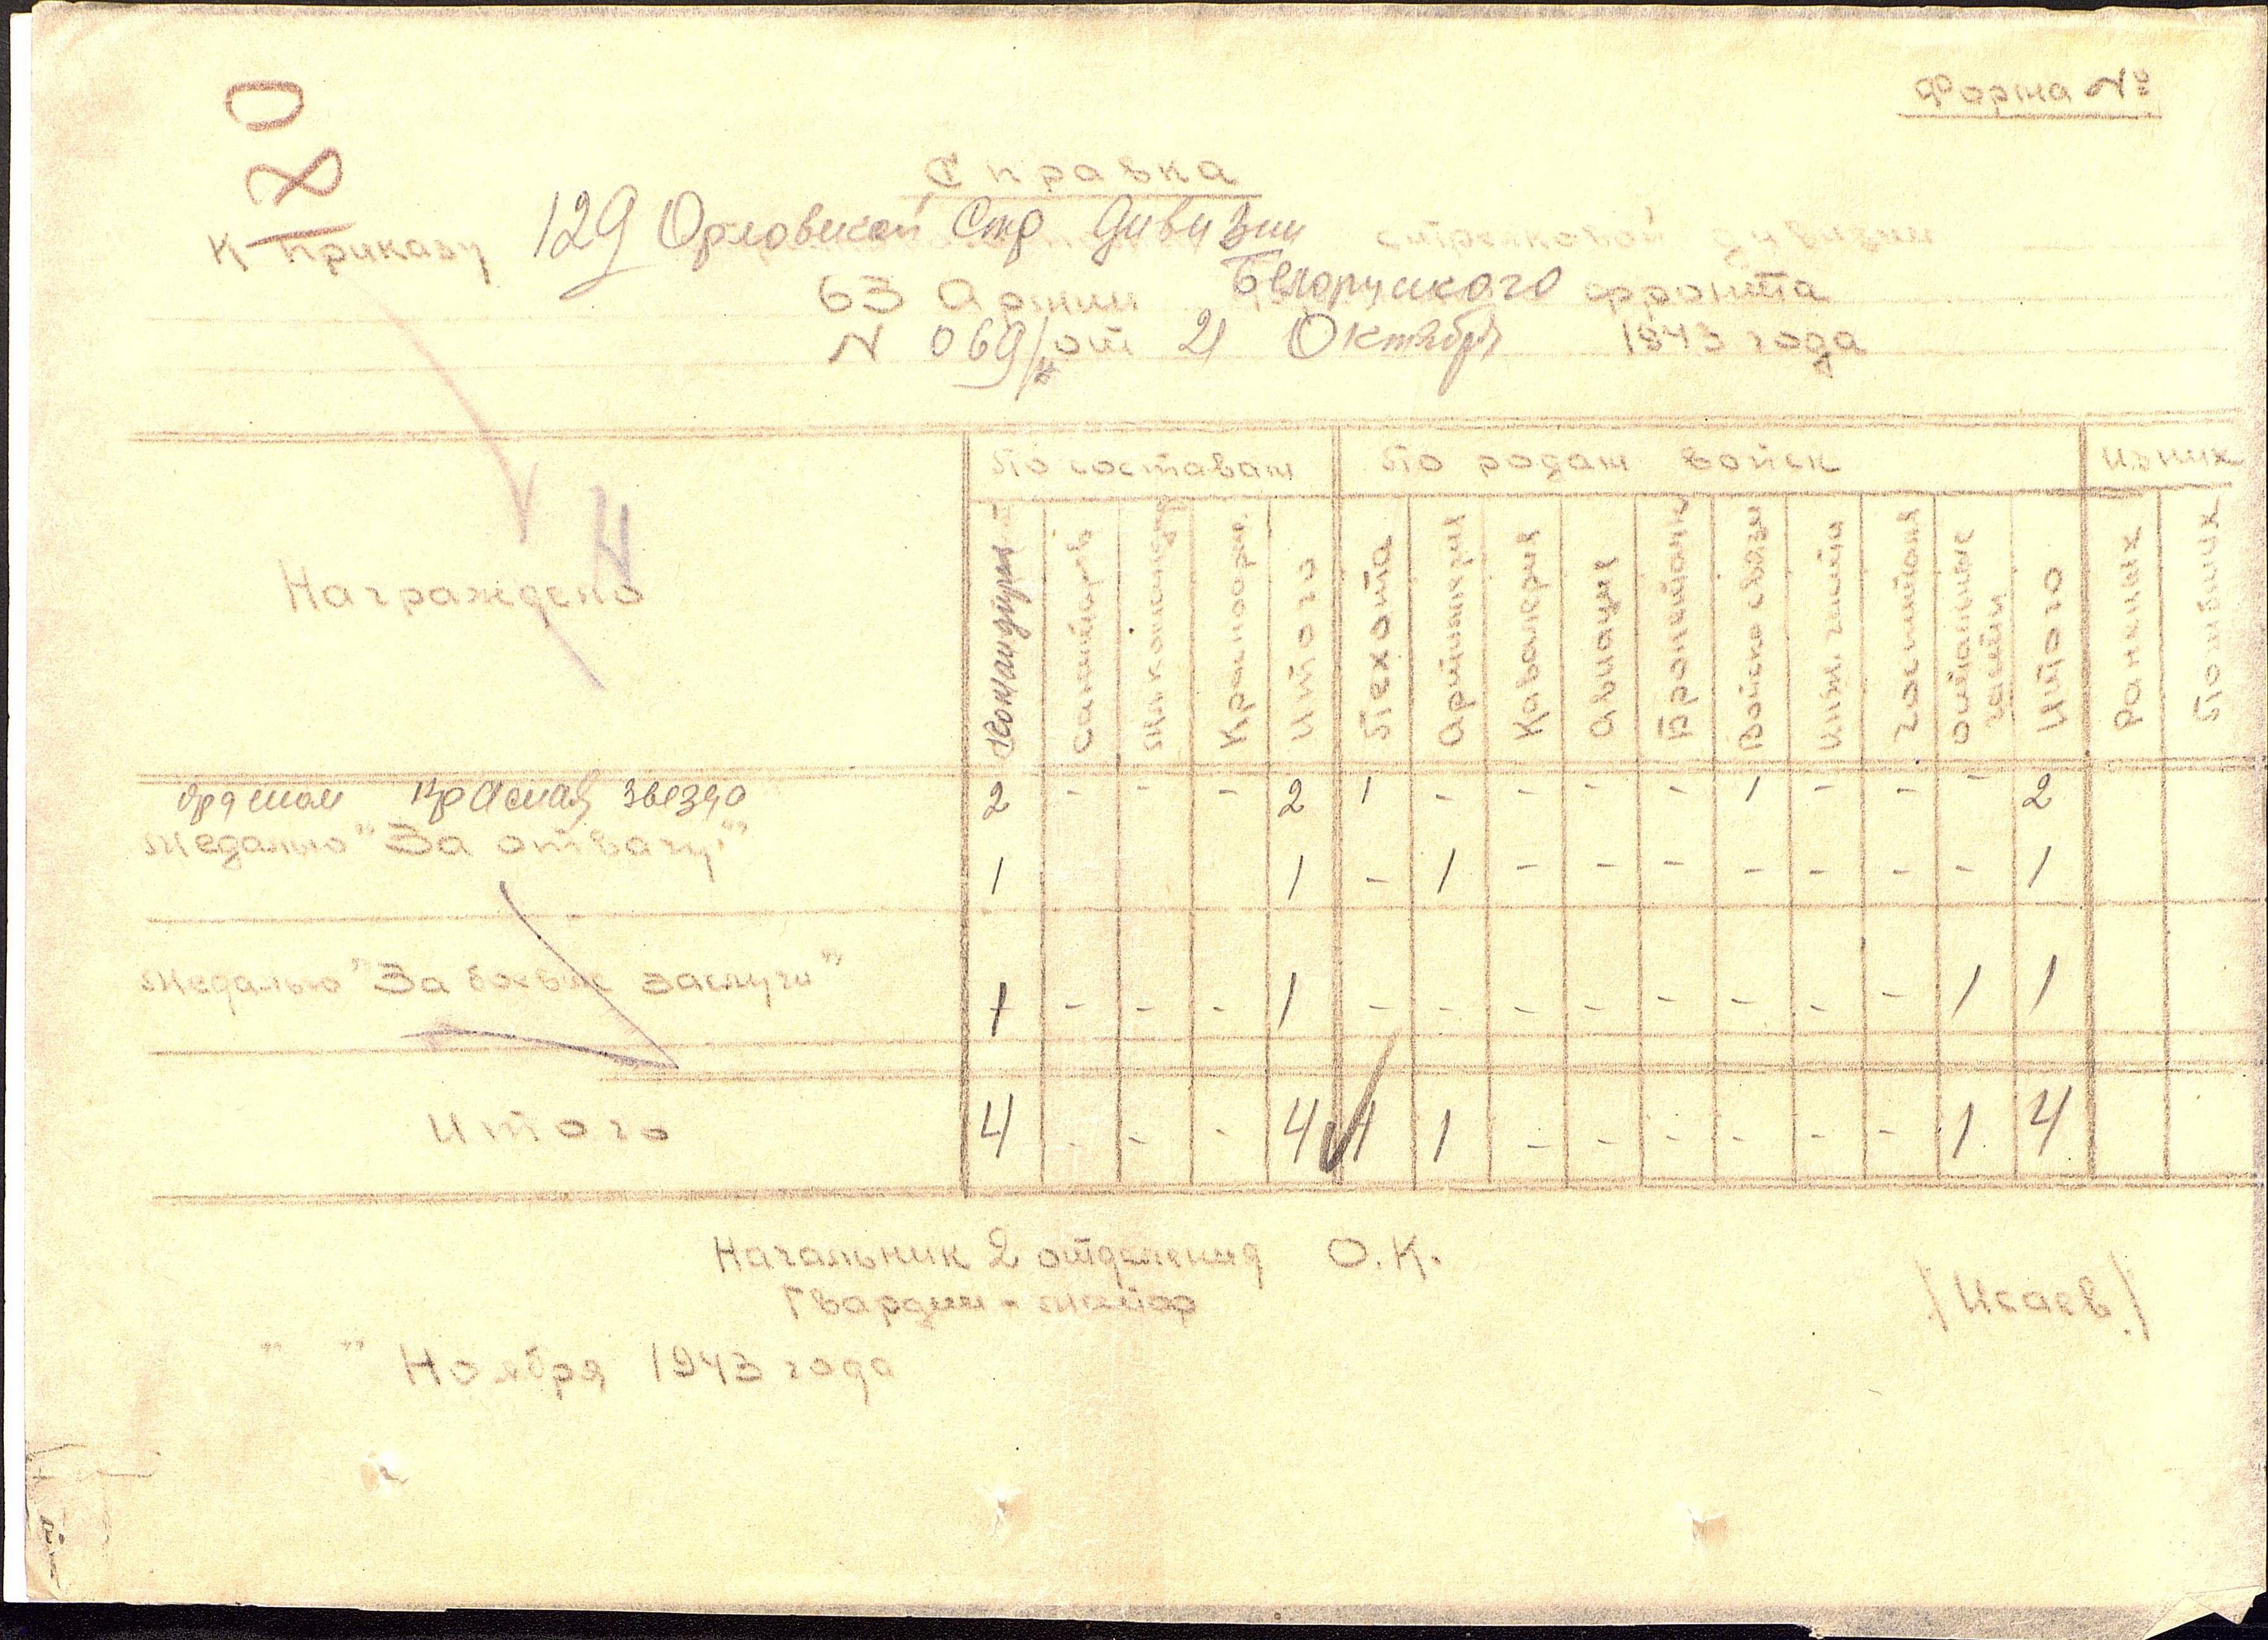 Форма №
Справка
К приказу 129 Орловской Стр Дивизии стрелковой дивизии
63 Армии Белоруского фронта
N 069/н от 21 Октября 1943 года
Награждено
По составам
По родам войск
Из них
Командиры
Красноарм.
Итого
Пехота
Артиллерия
Кавалерия
Авиация
Войска связи
Инж. части
Остальные части
Итого
Раненых
Погибших
Орденом Красная звезда 2 - - - 2 1 - - - - 1 - - - 2
Медалью "За отвагу" 1 1 - 1 - - - - - - - 1
Медалью "За боевые заслуги" 1 - - - 1 - - - - - - - - 1 1
Итого 4 - - - 4 1 1 - - - - - - 1 4
Начальник 2 отделения О.К.
Гвардии - майор /Исаев/
" " Ноября 1943 года